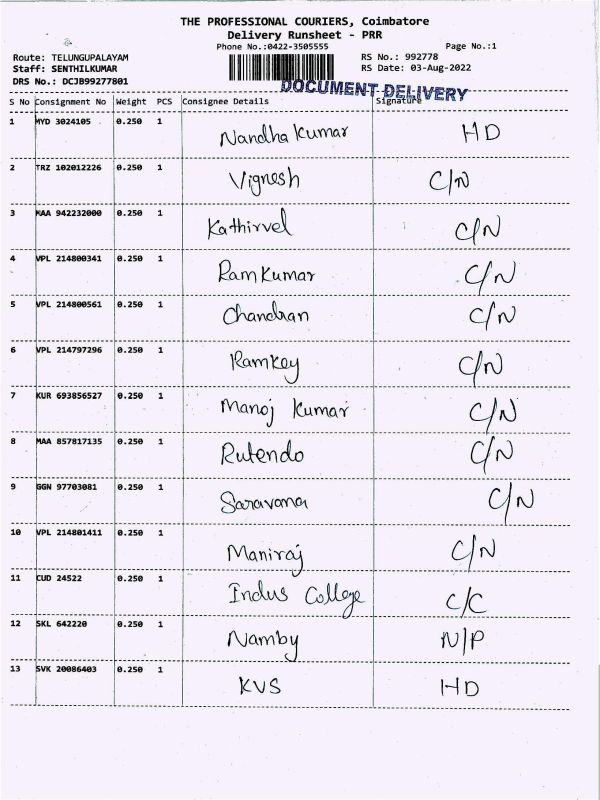 THE PROFESSIONAL COURIERS, Coimbatore
Delivery Runsheet - PRR
Phone No.:0422-3505555 Page No.:1
Route: TELUNGUPALAYAM RS No.: 992778
Staff: SENTHILKUMAR RS Date: 03-Aug-2022
DRS No.: DCJB99277801
DOCUMENT DELIVERY
S No Consignment No Weight PCS Consignee Details Signature
1 MYD 3024105 0.250 1 Nandha Kumar HD
2 TRZ 102012226 0.250 1 Vignesh C/N
3 MAA 942232000 0.250 1 Kathirvel C/N
4 VPL 214800341 0.250 1 Ram Kumar C/N
5 VPL 214800561 0.250 1 Chandran C/N
6 VPL 214797296 0.250 1 Ramkey C/N
7 KUR 693856527 0.250 1 Manoj Kumar C/N
8 MAA 857817135 0.250 1 Rutendo C/N
9 GGN 97703081 0.250 1 Saravana C/N
10 VPL 214801411 0.250 1 Maniraj C/N
11 CUD 24522 0.250 1 Indus College C/C
12 SKL 642220 0.250 1 Namby N/P
13 SVK 20086403 0.250 1 KVS HD